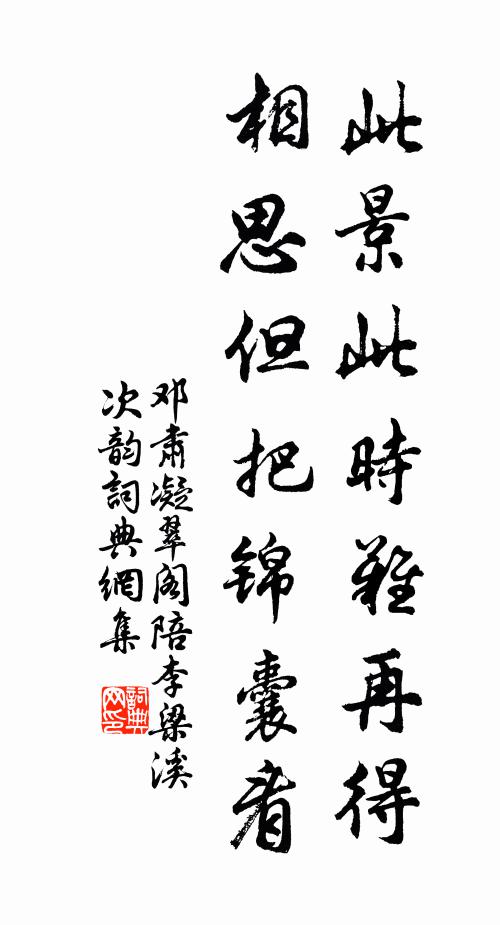 此景此時難再得
相思但把锦囊看
邓肅凝翠阁陪李梁溪
次韵詞典網集
詞典网印